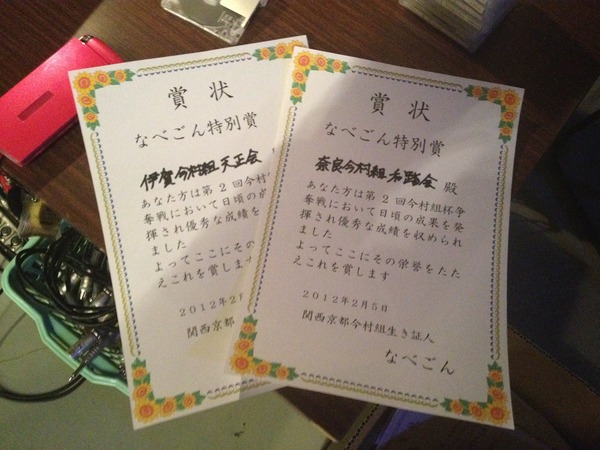 賞状
なべごん特別賞
伊賀今村組天正会
あなた方は第2回今村
奪戦において日頃の成
揮され優秀な成績を
ました
よってここにその
えこれを賞します
2012年2月
関西京都
賞状
なべごん特別賞
奈良今村組 殿
あなた方は第2回今村組杯争
奪戦において日頃の成果を発
揮され優秀な成績を収められ
ました
よってここにその栄誉をたた
えこれを賞します
2012年2月5日
関西京都今村組生き証人
なべごん